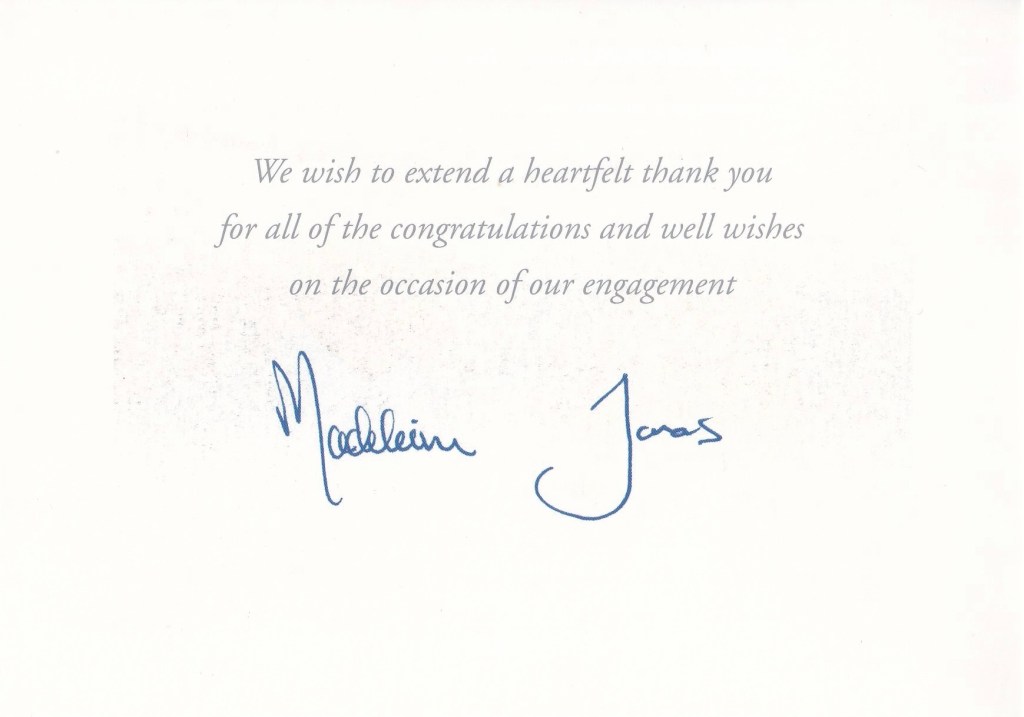 We wish to extend a heartfelt thank you
for all of the congratulations and well wishes
on the occasion of our engagement
Madeleine Jonas